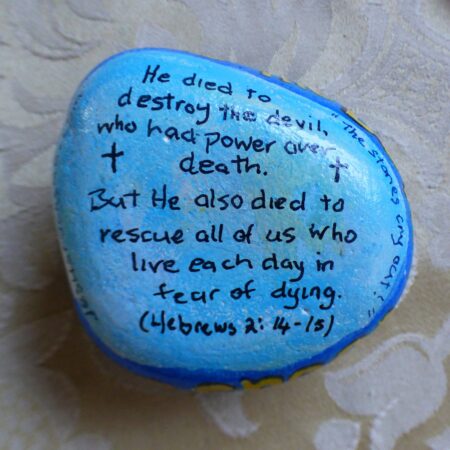 He died to
destroy the devil,
who had power over
death.
But He also died to
rescue all of us who
live each day in
fear of dying.
(Hebrews 2:14-15)
"The stones cry out!"